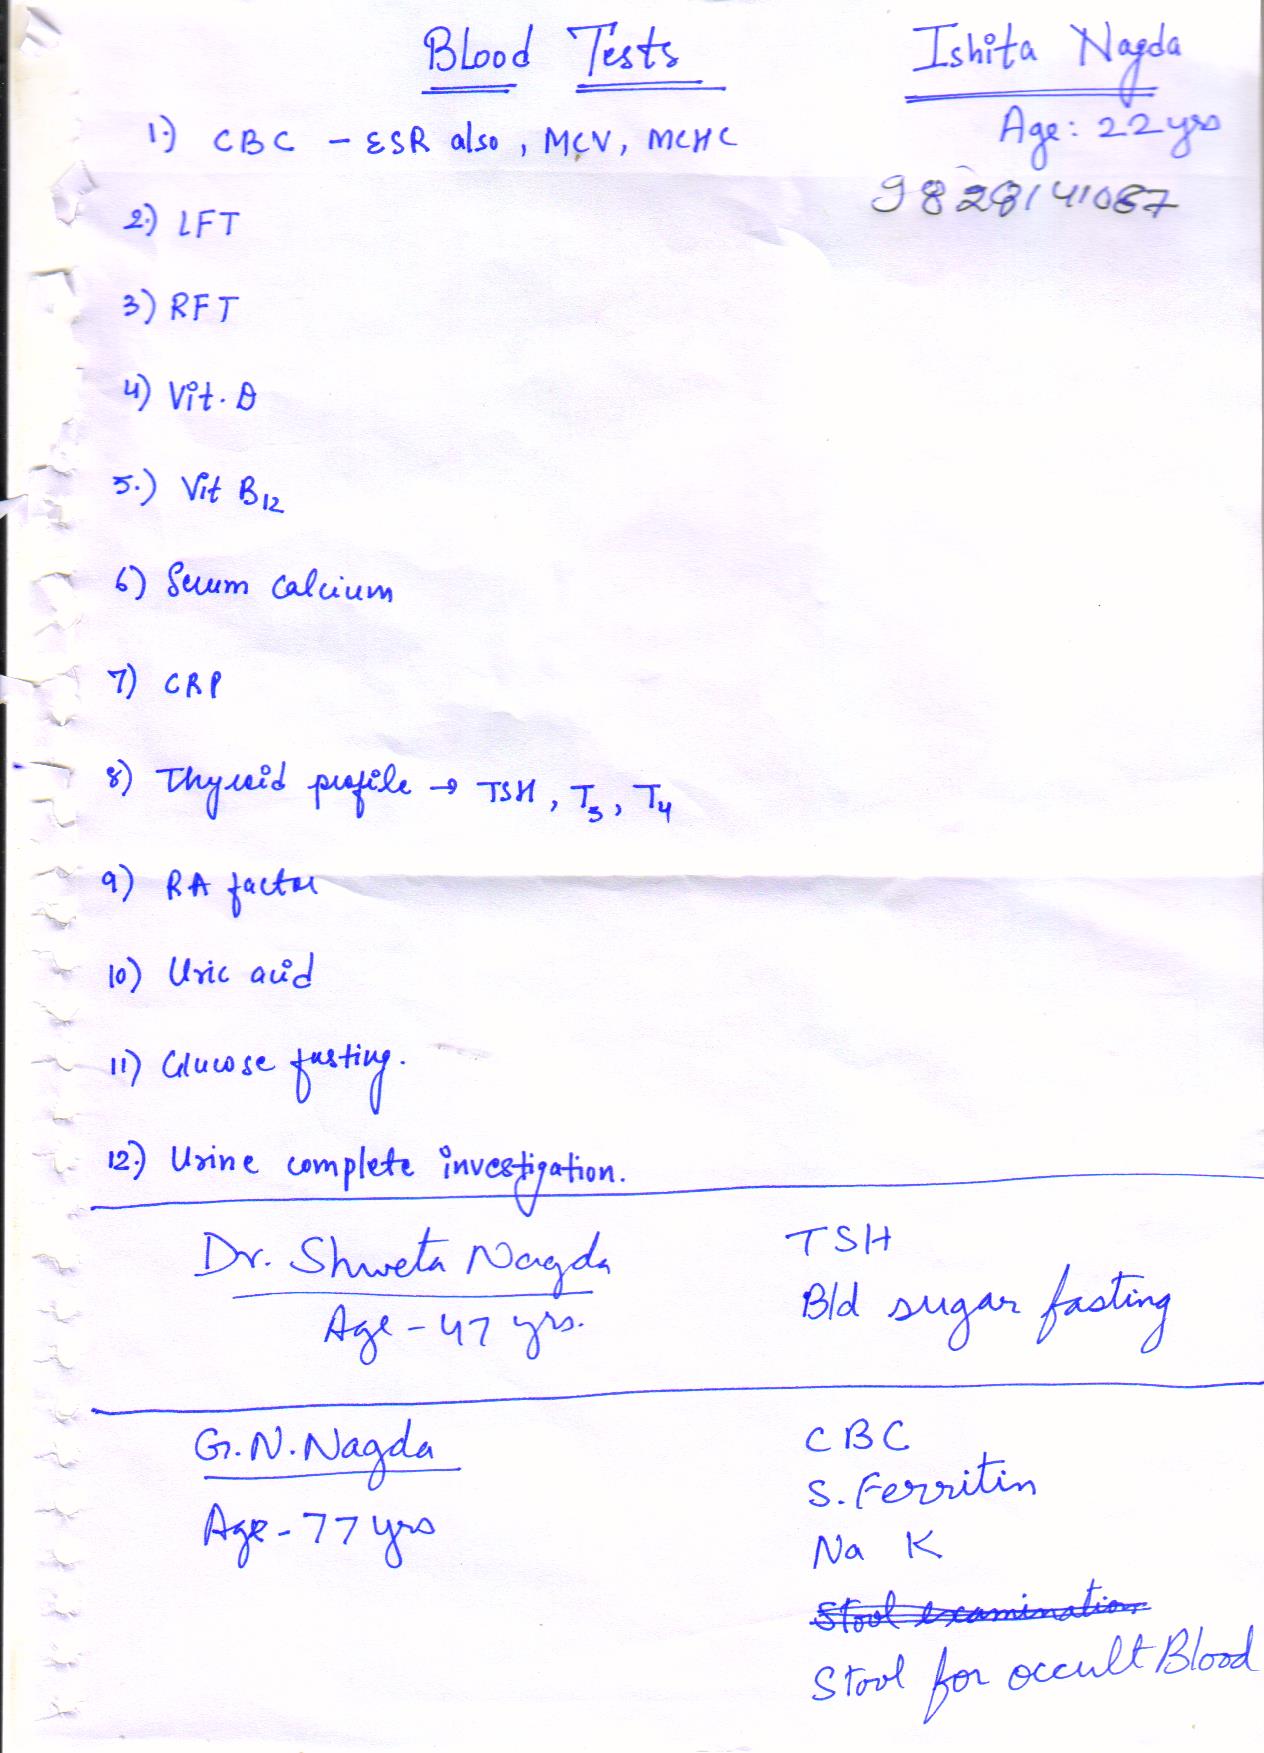 Blood Tests
Ishita Nagda
Age: 22 yrs
1.) CBC - ESR also, MCV, MCHC
2.) LFT
3.) RFT
4) Vit. D
5.) Vit B12
6) Serum Calcium
7) CRP
8) Thyroid profile → TSH, T3, T4
9) RA factor
10) Uric acid
11) Glucose fasting.
12.) Urine complete investigation.
Dr. Shweta Nagda
Age - 47 yrs.
TSH
Bld sugar fasting
G.N. Nagda
Age - 77 yrs
CBC
S. Ferritin
Na K
Stool examination
Stool for occult Blood